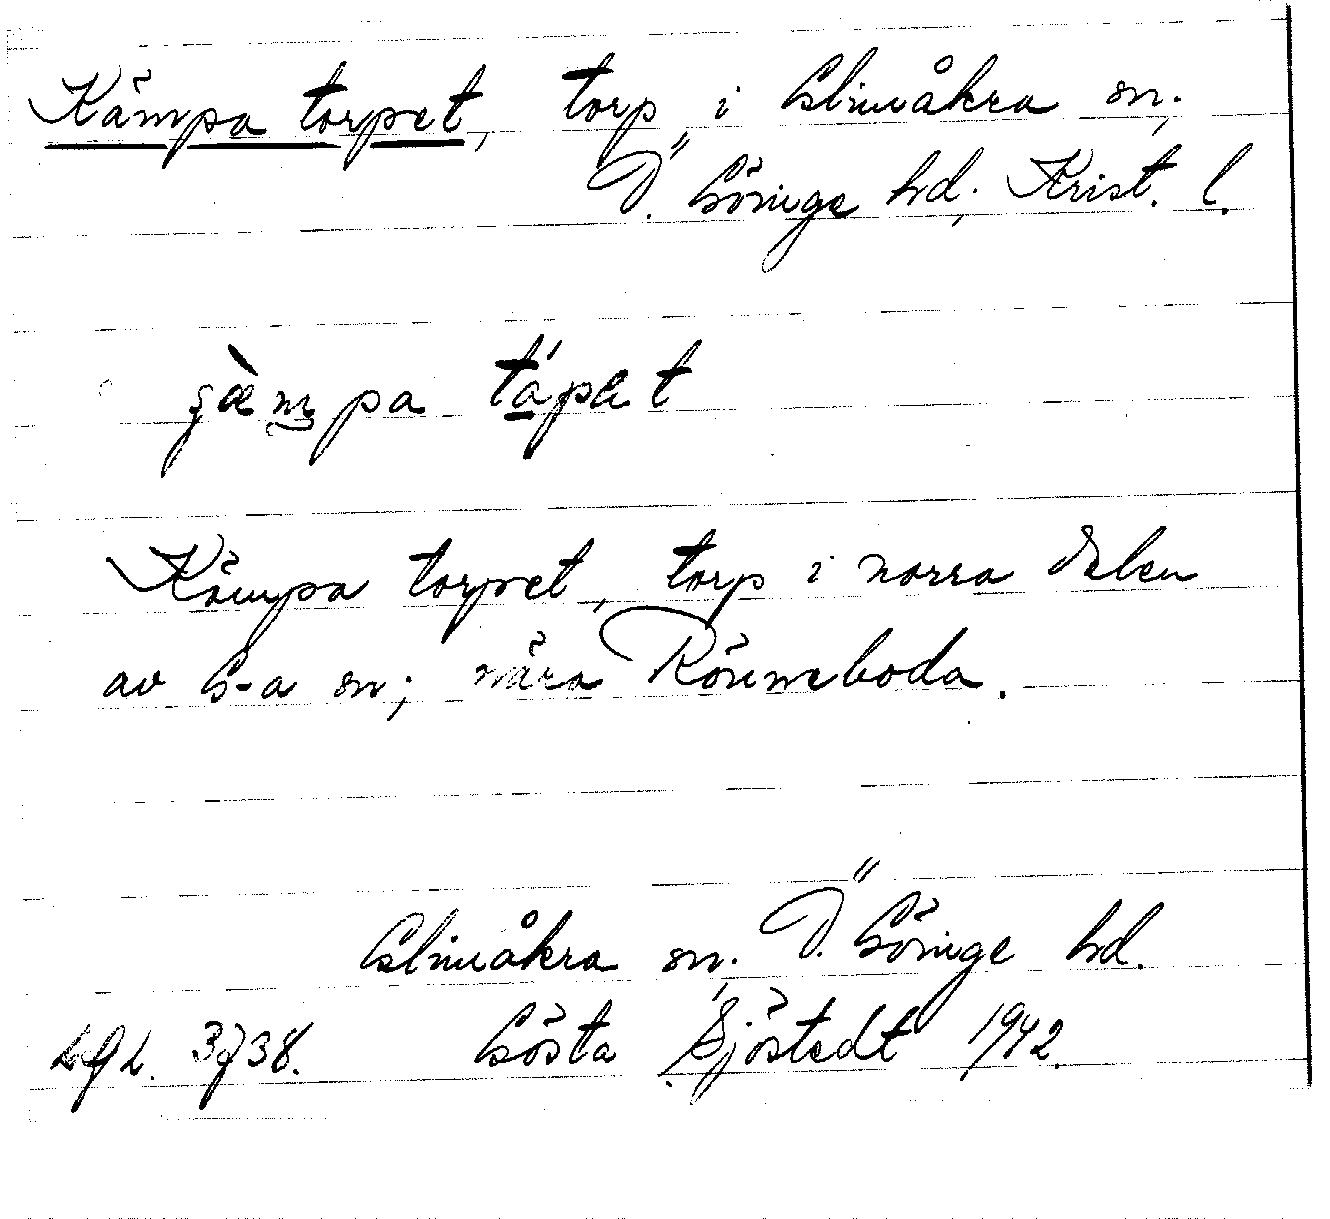 Kämpa torpet, torp i Glimåkra sn;
Ö. Göinge hd; Krist. l.
Kämpa torpet, torp i norra delen
av G-a sn; nära Rönneboda.
Glimåkra sn; Ö. Göinge hd.
Gösta Sjöstedt 1942.